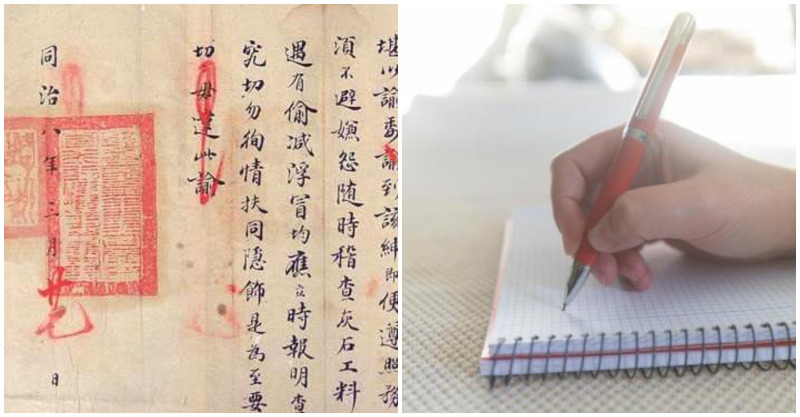 堪以諭委諭到該紳即便遵照務
須不避嫌怨随時稽查灰石工料
遇有偷減浮冒均應立時報明查
究切勿徇情扶同隱飾是為至要
切毋違此諭
同治八年三月廿七日